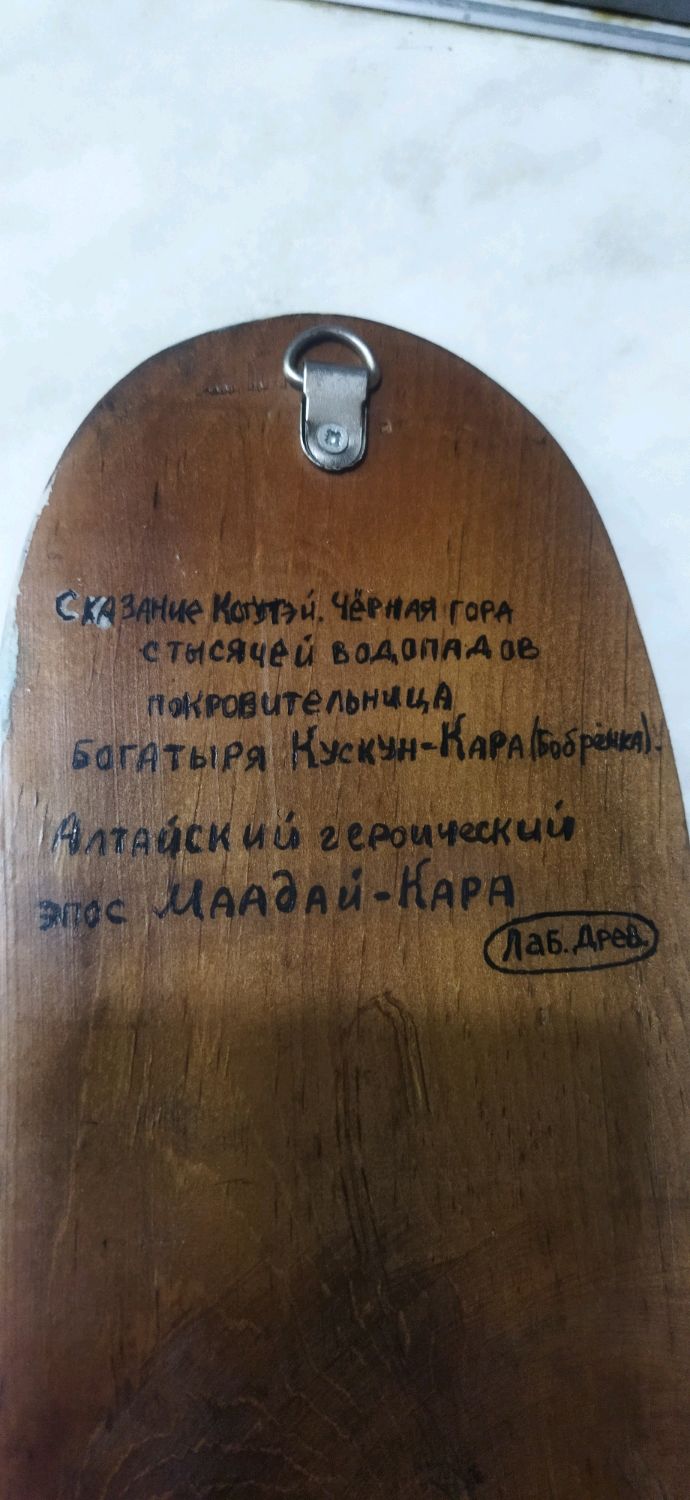 Сказание Когутэй. Чёрная гора
с тысячей водопадов
покровительница
богатыря Кускун-Кара (Бобрёнка).
Алтайский героический
эпос Маадай-Кара
Лаб. Древ.